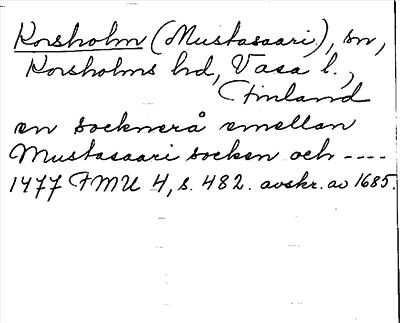 Korsholm (Mustasaari), sn,
Korsholms hd, Vasa l.,
Finland
en socknerå emellan
Mustasaari socken och ----
1477 FMU 4, s. 482. avskr. av 1685.